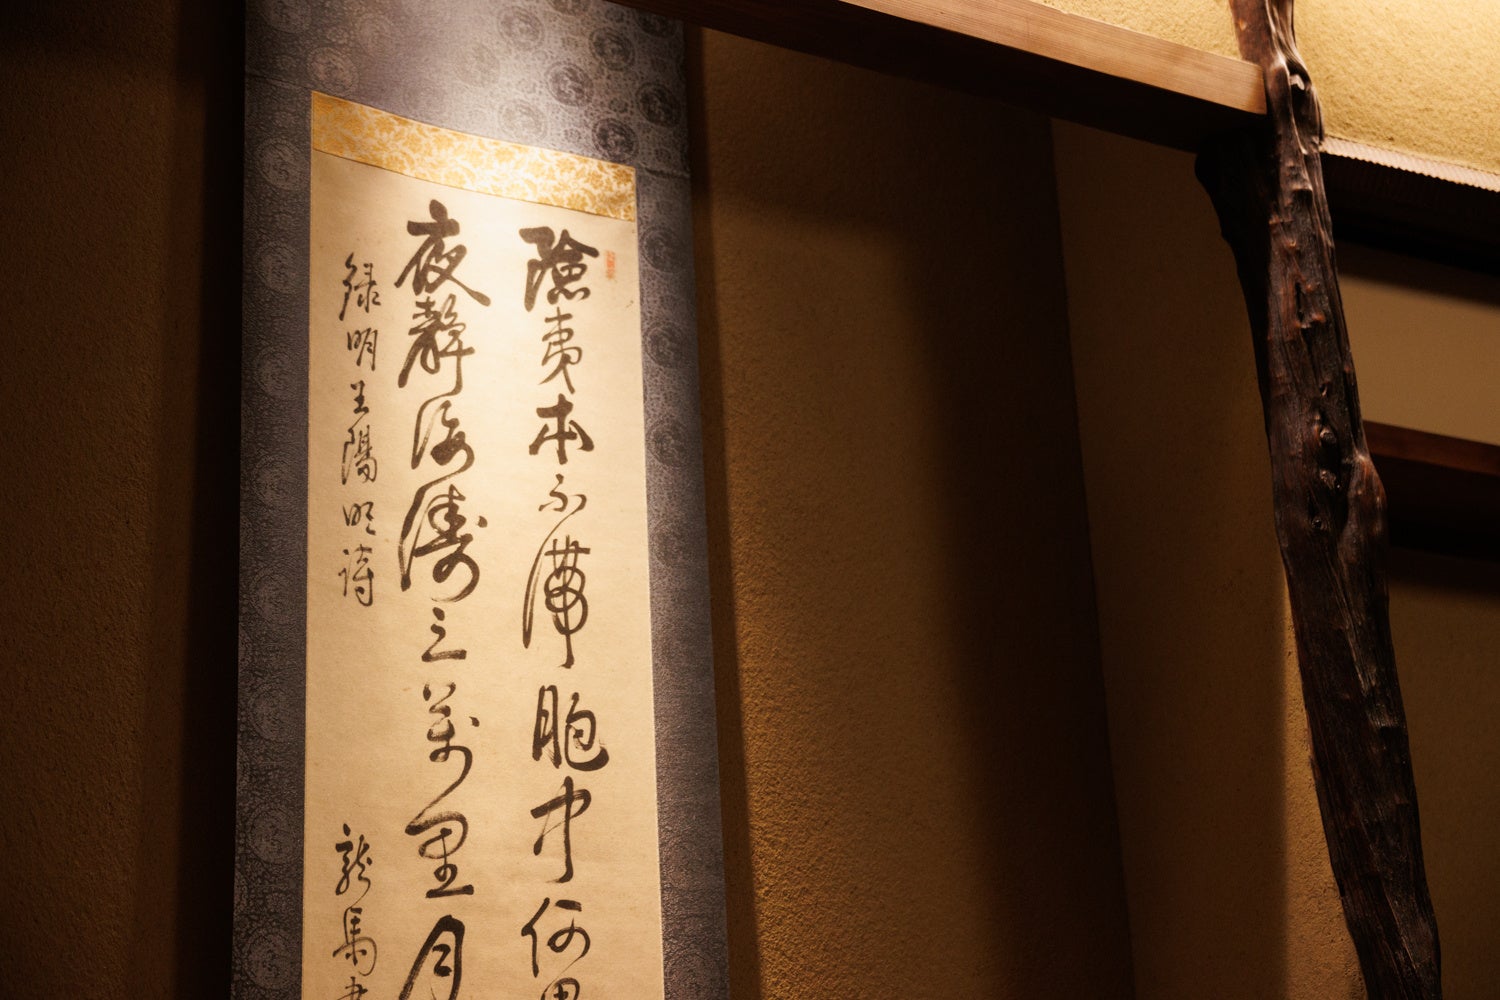 險夷本不滞胸中何異
夜靜海濤三萬里月
録明王陽明詩
龍馬書